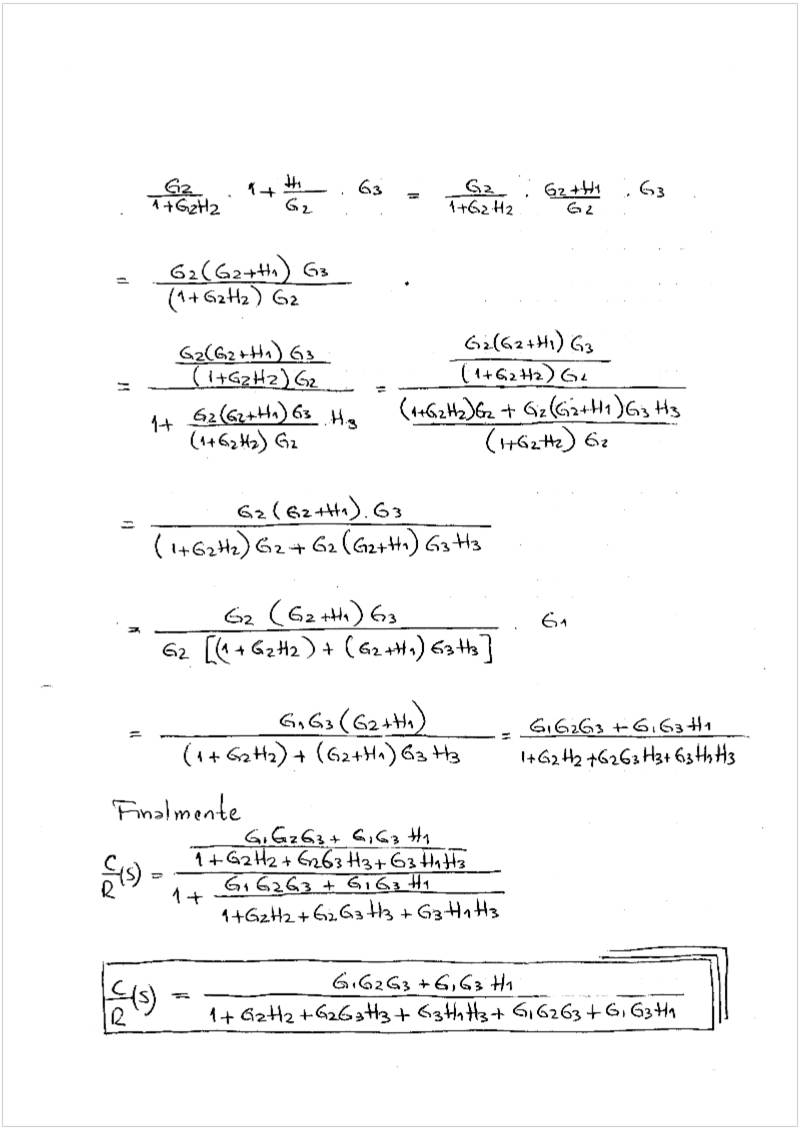 G2/(1+G2H2) · 1 + H1/G2 · G3 = G2/(1+G2H2) · (G2+H1)/G2 · G3
= G2(G2+H1) G3 / (1+G2H2) G2
= [G2(G2+H1) G3 / (1+G2H2) G2] / [1 + G2(G2+H1) G3 / (1+G2H2) G2 · H3] = [G2(G2+H1) G3 / (1+G2H2) G2] / [(1+G2H2)G2 + G2(G2+H1)G3 H3 / (1+G2H2) G2]
= G2(G2+H1).G3 / (1+G2H2)G2 + G2(G2+H1) G3H3
= G2 (G2+H1) G3 / G2 [(1+G2H2) + (G2+H1) G3H3] · G1
= G1G3(G2+H1) / (1+G2H2) + (G2+H1)G3H3 = G1G2G3 + G1G3H1 / 1+G2H2+G2G3H3+G3H1H3
Finalmente
C/R(s) = [G1G2G3 + G1G3H1 / 1+G2H2+G2G3H3+G3H1H3] / [1 + G1G2G3 + G1G3H1 / 1+G2H2+G2G3H3+G3H1H3]
C/R(s) = G1G2G3 + G1G3H1 / 1+G2H2+G2G3H3+G3H1H3+G1G2G3+G1G3H1